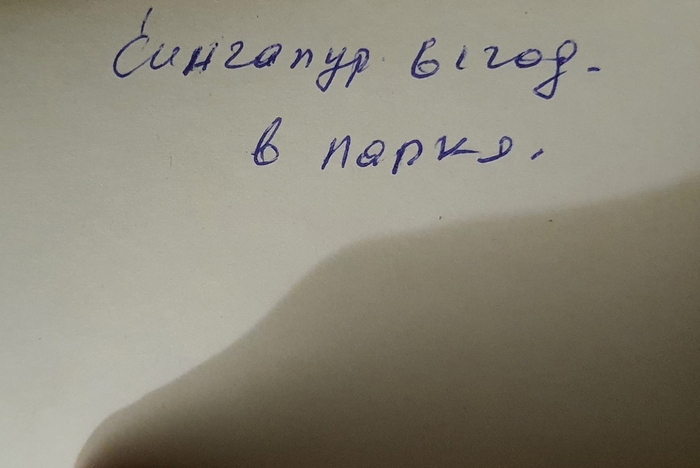 Сингапур выгод-
в парке.